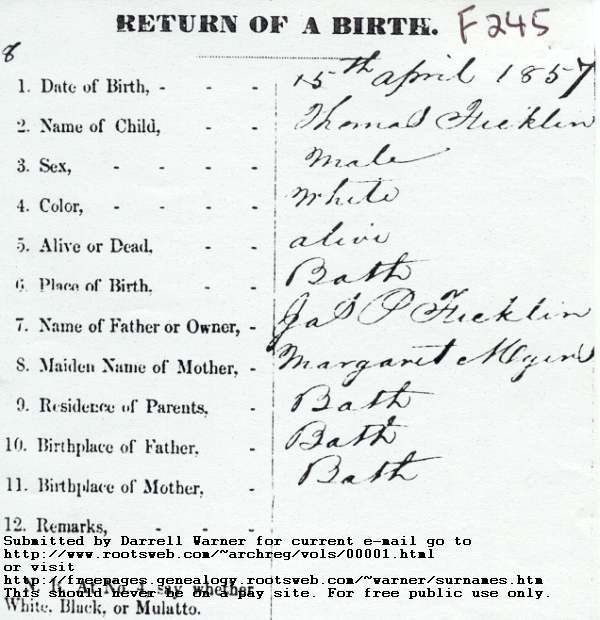 RETURN OF A BIRTH. F245
8
1. Date of Birth, - - - 15th april 1857
2. Name of Child, - - Thomas Ficklin
3. Sex, - - - - Male
4. Color, - - - - White
5. Alive or Dead, - - alive
6. Place of Birth, - - Bath
7. Name of Father or Owner, - Jas P Ficklin
8. Maiden Name of Mother, - Margaret Myers
9. Residence of Parents, - Bath
10. Birthplace of Father, - Bath
11. Birthplace of Mother, - Bath
12. Remarks, - - -
Submitted by Darrell Warner for current e-mail go to
http://www.rootsweb.com/~archreg/vols/00001.html
or visit
N. B. At No. 4 say whether
http://freepages.genealogy.rootsweb.com/~warner/surnames.htm
This should never be on a pay site. For free public use only.
White, Black, or Mulatto.